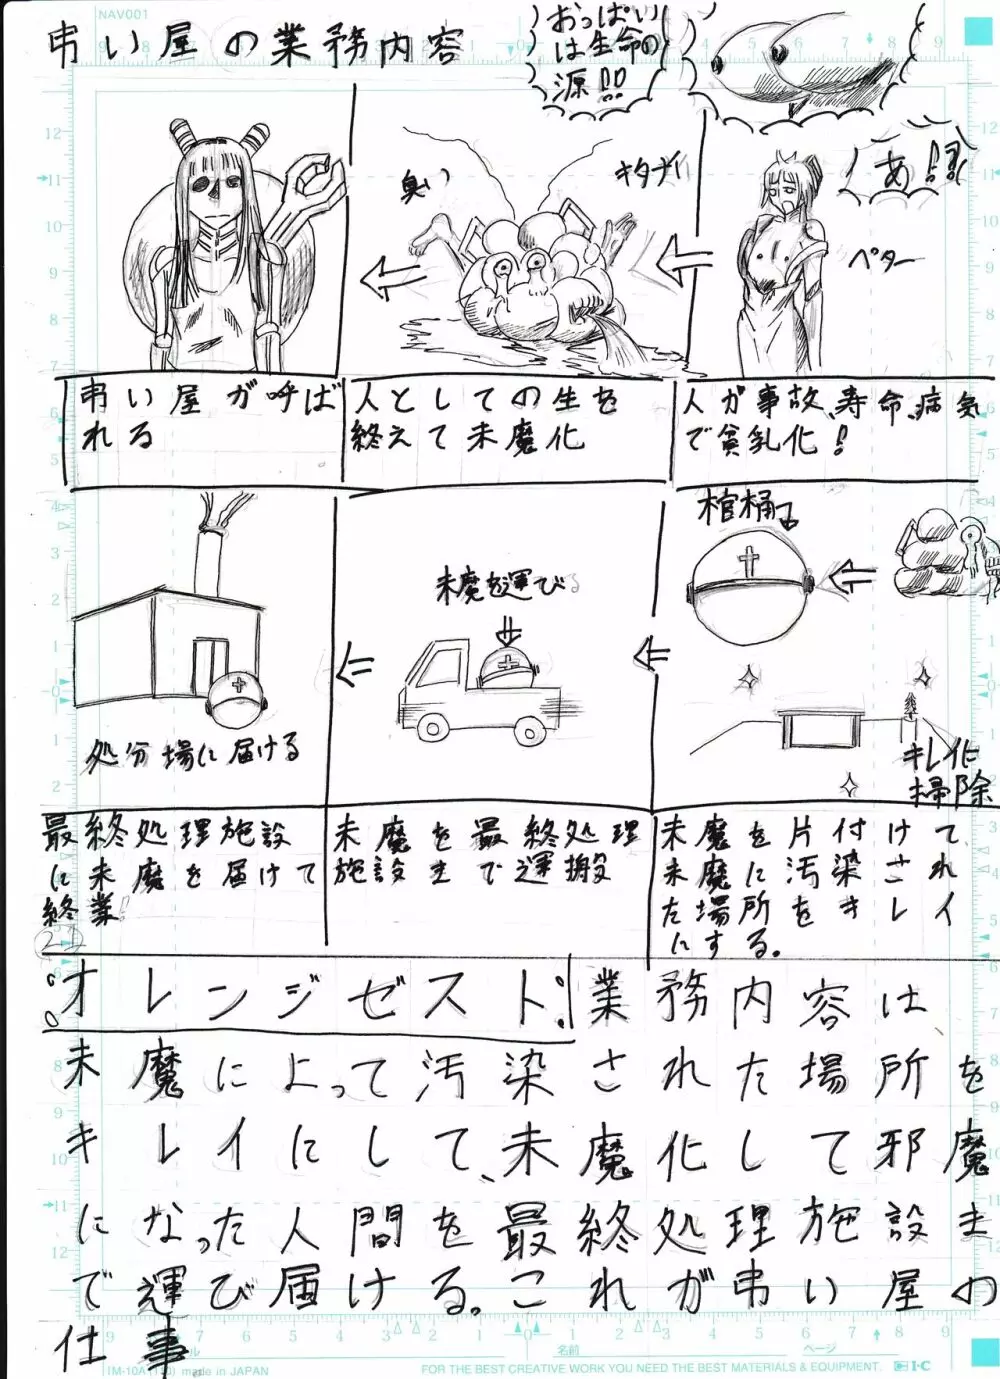 弔い屋の業務内容
おっぱい
は生命の
源!!
あ!!
ペター
キタナイ
臭い
人が事故、寿命、病気
で貧乳化!
人としての生を
終えて未魔化
弔い屋が呼ば
れる
棺桶
キレイに
掃除
未魔を運び
処分場に届ける
未魔を片付けて
未魔に汚染され
た場所をキレイ
にする。
未魔を最終処理
施設まで運搬
最終処理施設
に未魔を届けて
終業!
オレンジゼスト:業務内容は
未魔によって汚染された場所を
キレイにして、未魔化して邪魔
になった人間を最終処理施設ま
で運び届ける。これが弔い屋の
仕事
NAV001
made in JAPAN
名前
ページ
FOR THE BEST CREATIVE WORK YOU NEED THE BEST MATERIALS & EQUIPMENT.
I·C